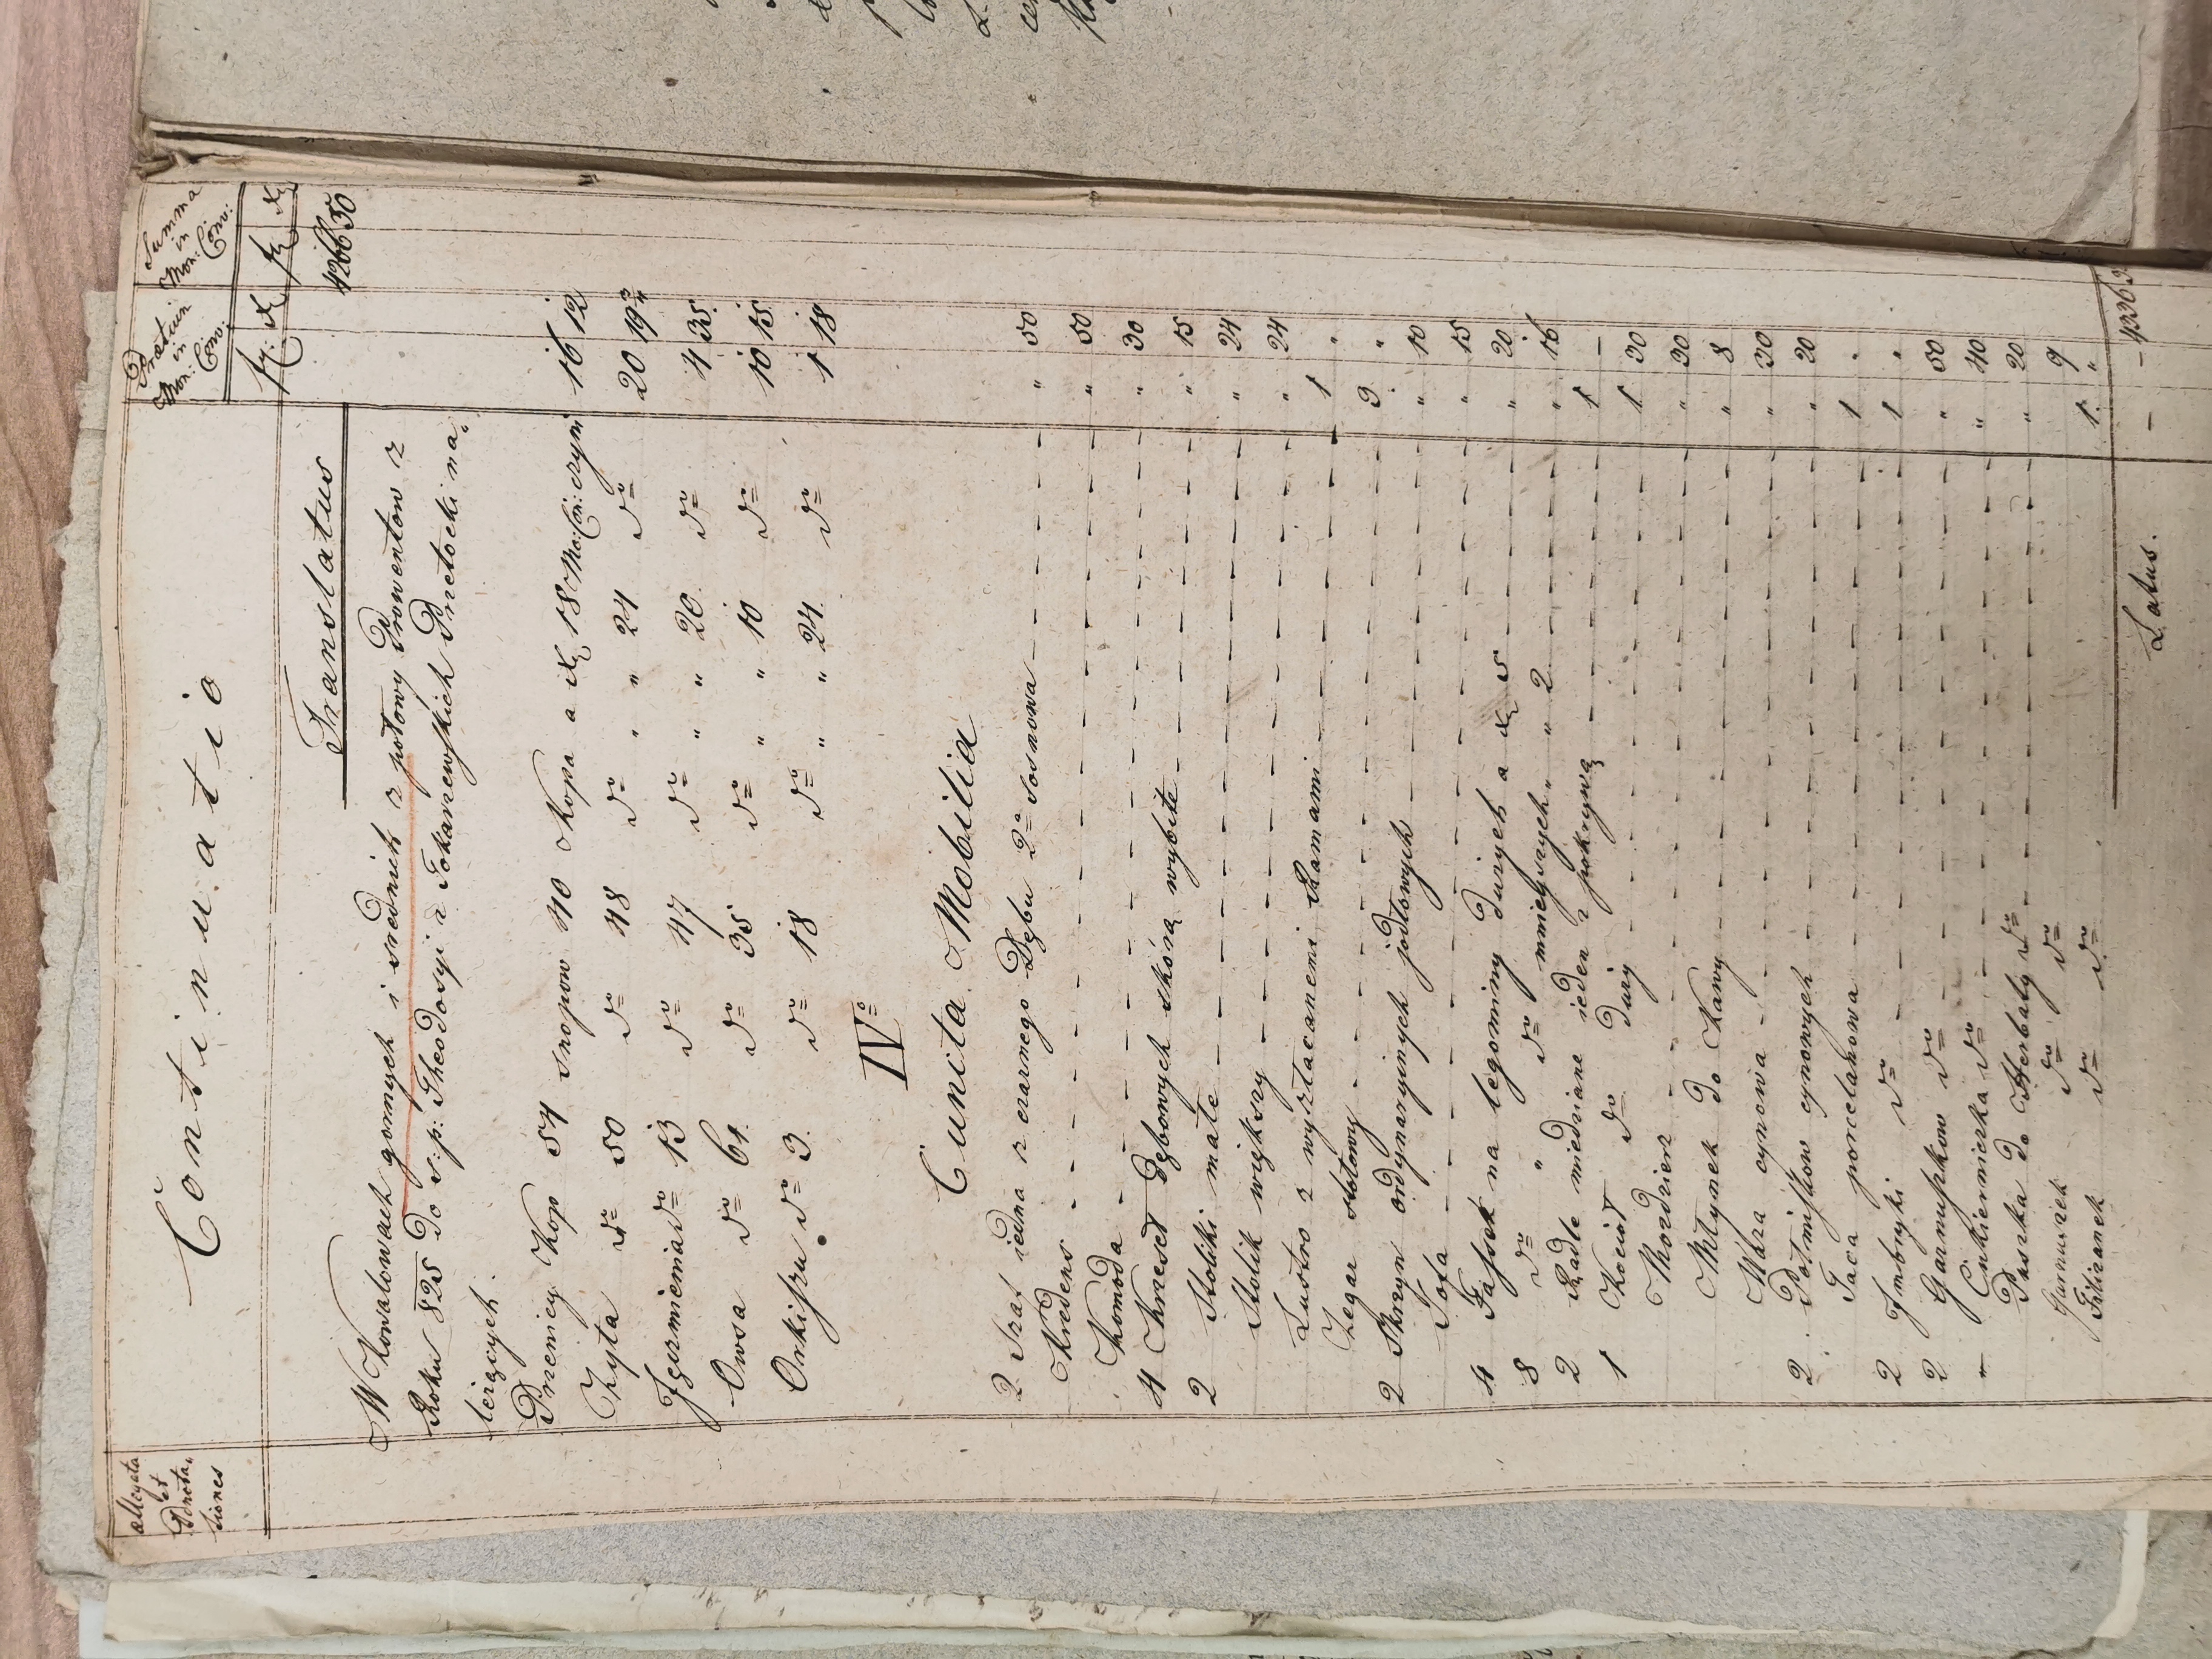 Continuatio
Allegata et Adnotationes
Pretium in Mon: Conv:
Summa in Mon: Conv:
fr: xr fr xr
Translatus 4266 50
W Kowalowach gornych i srednich z połowy Prowentow z
Roku 825 do s: p: Theodosyi z Tokarzewskich Pretocki na„
leżących.
Przenicy Kop 54 snopow 40 Kopa a xr 18 Mo: Con: czyni 16 12
Żyta do 50 do 48 do " " 24 do 20 19
Jęczmienia do 13 do 47 do " " 20 do 4 35
Owsa do 61 do 35 do " " 10 do 10 15
Orkiszu do 3 do 18 do " " 24 do 1 18
IVo
Cunita Mobilia
2 Szaf iedna z czarnego Dębu 2a Sosnowa " 50
Kredens " 50
Komoda " 30
4 Krzeseł Dębowych skórą wybite " 15
2 Stoliki małe " 24
Stolik większy " 24
Lustro z wyztacanemi Ramami 1 "
Zegar stołowy 3 "
2 Skrzyn ordynaryinych jodłowych " 10
Sofa " 15
4 Fassek na legominy dużych a xr 5 " 20
8 do " do mnieyszych " " 2 " 16
2 Rądle miedziane ieden z pokrywą 1 –
1 Kocioł do duży 1 30
Moździerz " 30
Młynek do Kawy " 8
Waza cynowa " 30
2 Pułmiskow cynowych " 20
Taca porcelanowa 1 "
2 Jmbryki do 1 "
2 Garnuszkow do " 50
" Cukierniczka do " 40
Puszka do Herbaty do " 20
Garnuszek do do 9
Filiżanek do do 1 "
Latus. – – 4336